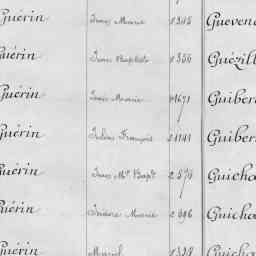 Guérin Jean Marie 1345 Gueven
Guérin Jean Baptiste 1356 Guézill
Guérin Louis Marie 1671 Guiber
Guérin Julien François 1141 Guiber
Guérin Jean Mie Bapte 2576 Guicha
Guérin Isidore Marie 2696 Guicha
Guérin Marcel 1328 Guicha